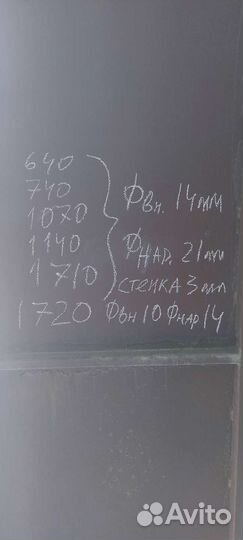 640
740
1070
1140
1710
1720
Фвн. 14мм
Фнар. 21мм
стенка 3мм
Фвн 10 Фнар 14
Avito